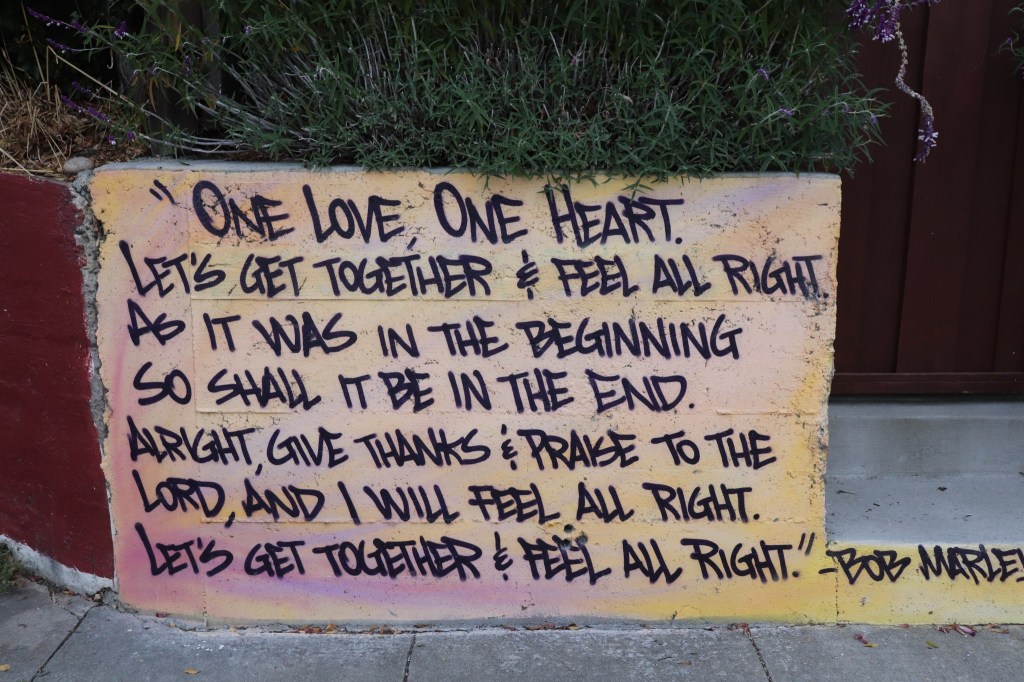 "ONE LOVE, ONE HEART.
LET'S GET TOGETHER & FEEL ALL RIGHT.
AS IT WAS IN THE BEGINNING
SO SHALL IT BE IN THE END.
ALRIGHT, GIVE THANKS & PRAISE TO THE
LORD, AND I WILL FEEL ALL RIGHT.
LET'S GET TOGETHER & FEEL ALL RIGHT." -BOB MARLE